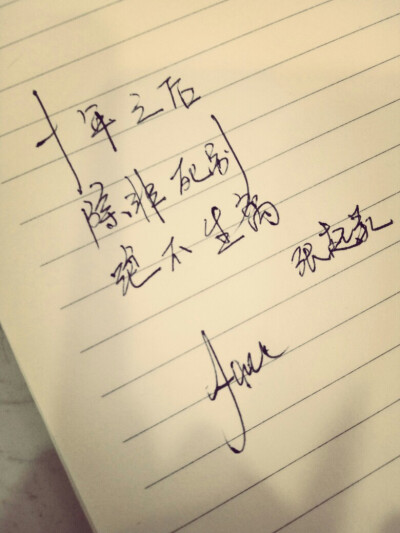 十年之后
除非死别
绝不生离
张起灵